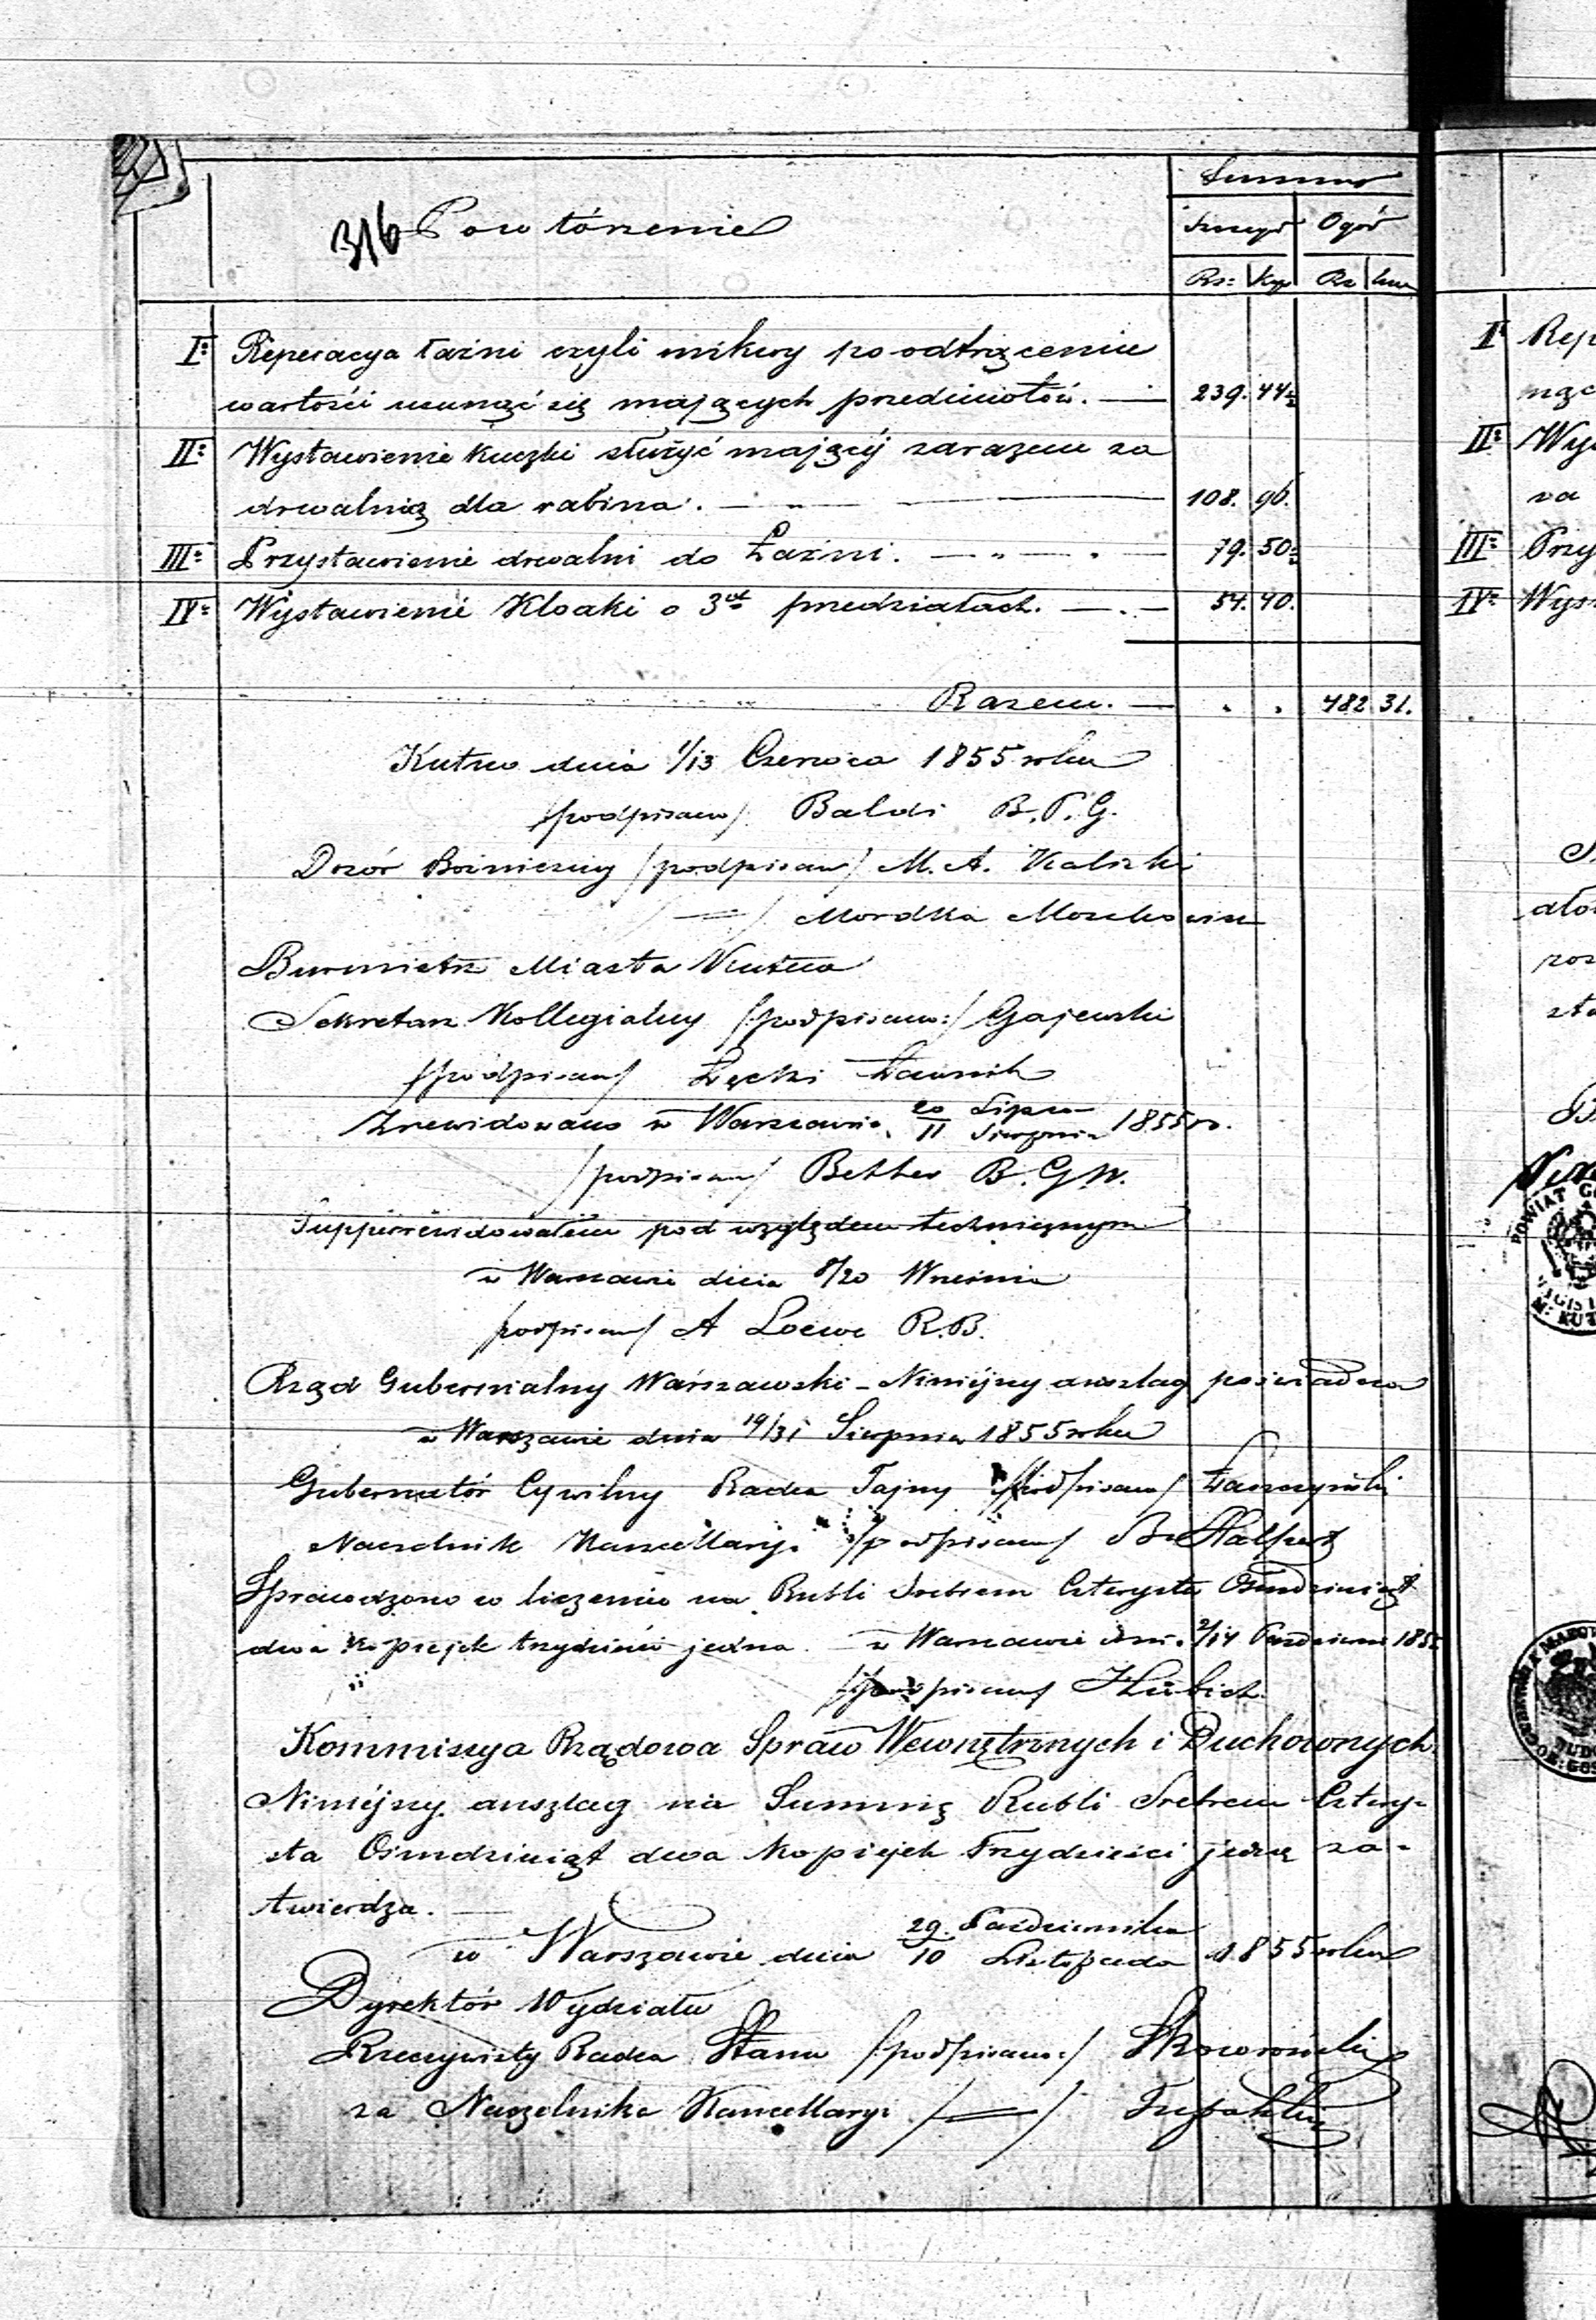 Summa
316 Powtórzenie
Szczegó Ogół
Rs: Kop Rs kop
I: Reperacya łaźni czyli mikwy po odtrąceniu
wartości usunąć się mających przedmiotów. — 239. 44½
II: Wystawienie kuczki służyć mającéj zarazem za
drwalnią dla rabina. — 108. 96.
III: Przystawienie drwalni do Łaźni. — „ — . — 79. 50½
IV: Wystawienie Kloaki o 3ch przedziałach. — . — 54. 40.
Razem. — . . 482 31.
Kutno dnia 1/13 Czerwca 1855 roku
/podpisano/ Baldi B.P.G.
Dozór Bożniczny /podpisano/ M. A. Kaliski
/ = / Mordka Moszkowicz
Burmistrz Miasta Kutna
Sekretarz Kollegialny /podpisano:/ Gajewski
/podpisano/ Łęcki Ławnik
Zrewidowano w Warszawie 20 Lipca
11 Sierpnia 1855 r.
/podpisano/ B. G. W.
Supperrewidowałem pod względem technicznym
w Warszawie dnia 8/20 Września
/podpisano/ A Loewe R.B.
Rząd Gubernialny Warszawski – Niniéjszy anszlag poświadcza
w Warszawie dnia 19/31 Sierpnia 1855 roku
Gubernatór Cywilny Radca Tajny /podpisano/ Łaszczyński
Naczelnik Kancellaryi /podpisano/ Halpert
Sprawdzono w liczeniu na Rubli Srebrem Czterysta Ośmdziesiąt
dwa kopiejek trzydzieści jedna. — w Warszawie dnia 2/14 Październ 185
/podpisano/ Hübich
Kommissya Rządowa Spraw Wewnętrznych i Duchownych
Niniéjszy anszlag na Summę Rubli Srebrem Cztery-
sta Ośmdziesiąt dwa Kopiejek Trzydzieści jedną za-
twierdza. —
w Warszawie dnia 29. Października
10 Listopada 1855 roku
Dyrektór Wydziału
Rzeczywisty Radca Stanu /podpisano:/
za Naczelnika Kancellaryi / = /
I: Rep
mąc
II: Wys
va
III: Przy
IV: Wys
POWIAT G
M: KUT